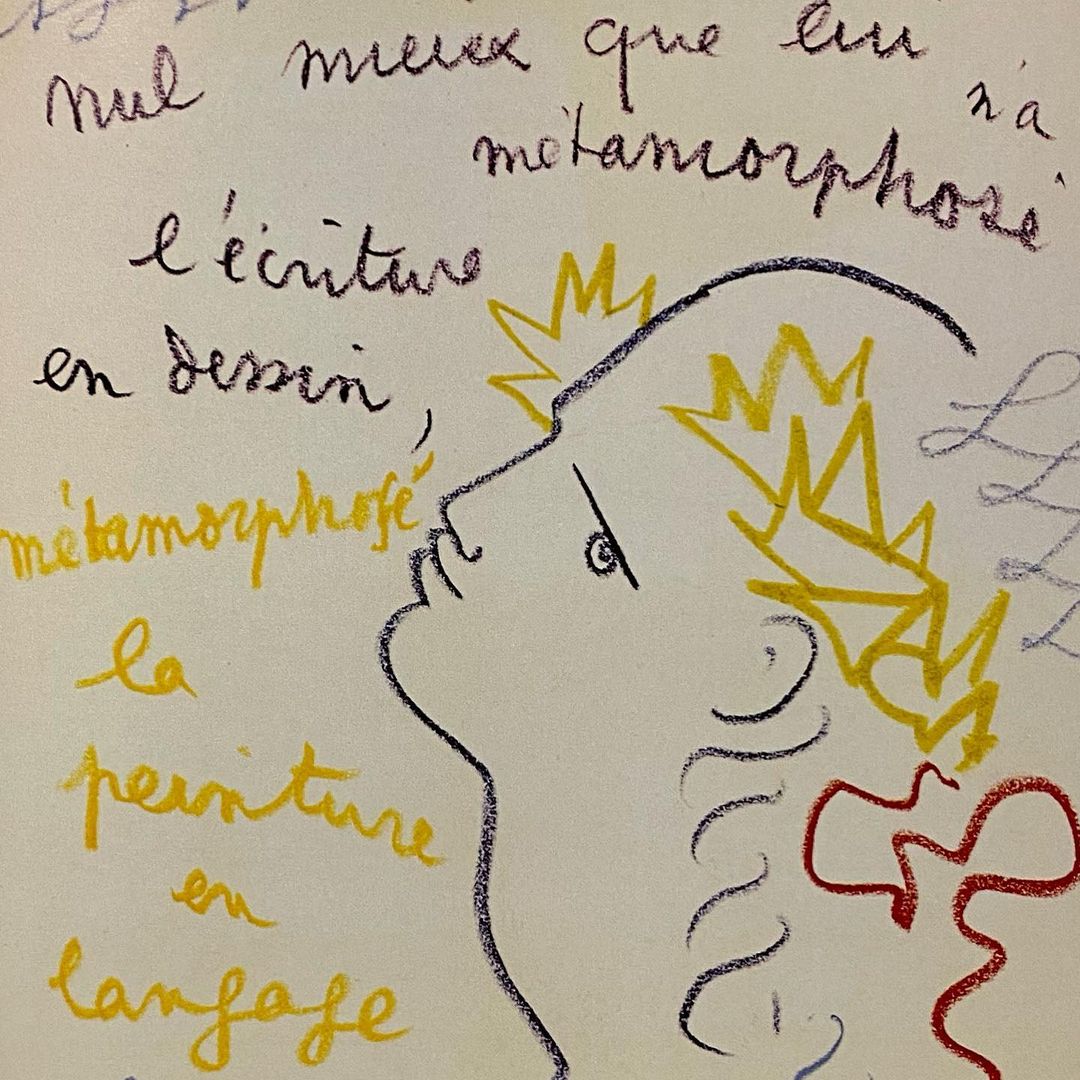 nul mieux que lui
n'a
métamorphosé
l'écriture
en dessin,
métamorphosé
la
peinture
en
langage